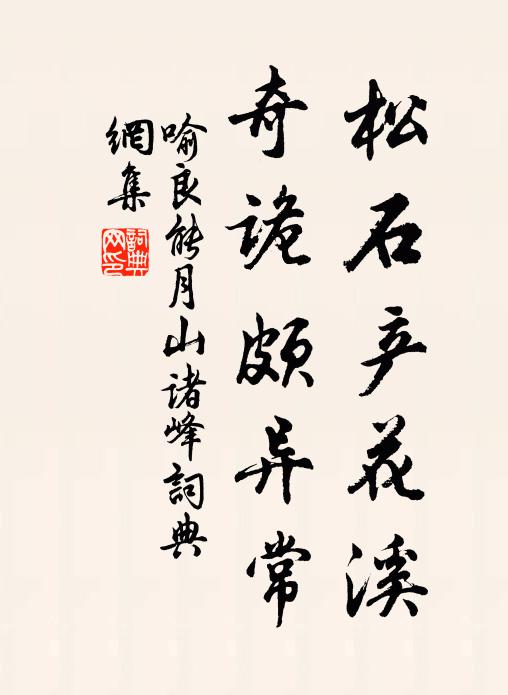 松石产花溪
奇诡颇异常
喻良能月山诸峰词典
網集
詞典網印